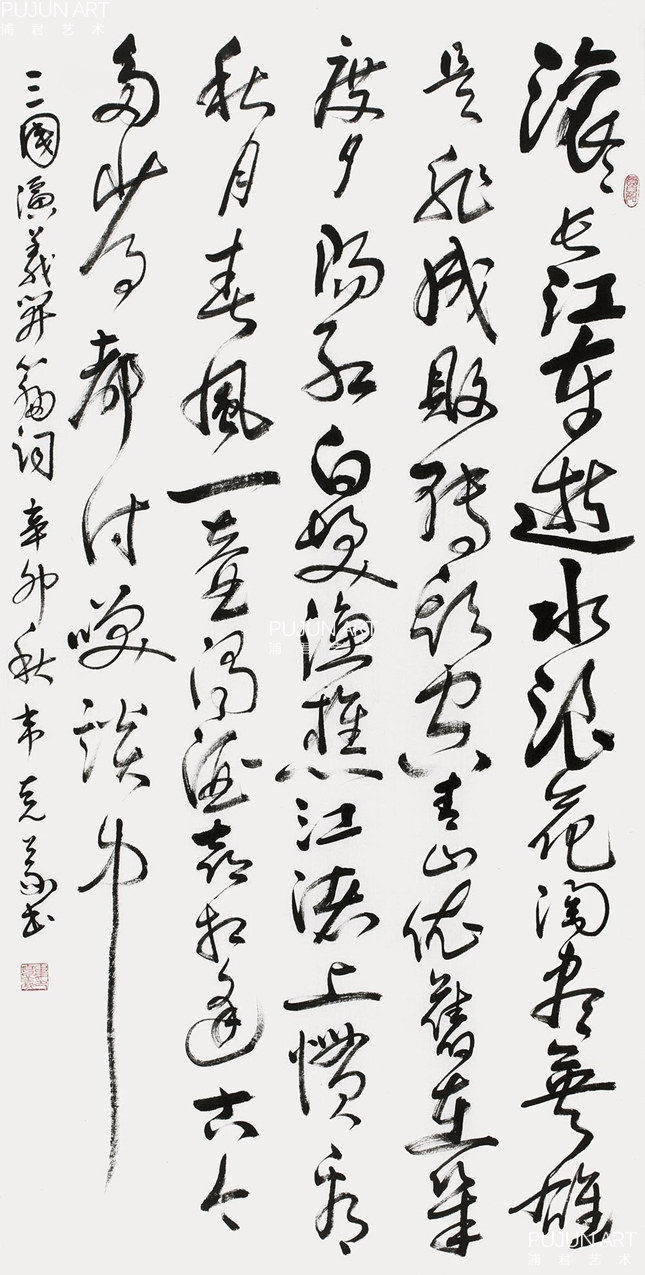 PUJUN ART
浦君艺术
滚〻长江东逝水浪花淘尽英雄
是非成败转头空青山依舊在幾
度夕阳红白髮渔樵江渚上惯看
秋月春風一壺濁酒喜相逢古今
多少事都付笑谈中
三國演義開篇词 辛卯秋 韦克义书
PUJUN ART
浦君艺术
PUJUN ART
浦君艺术